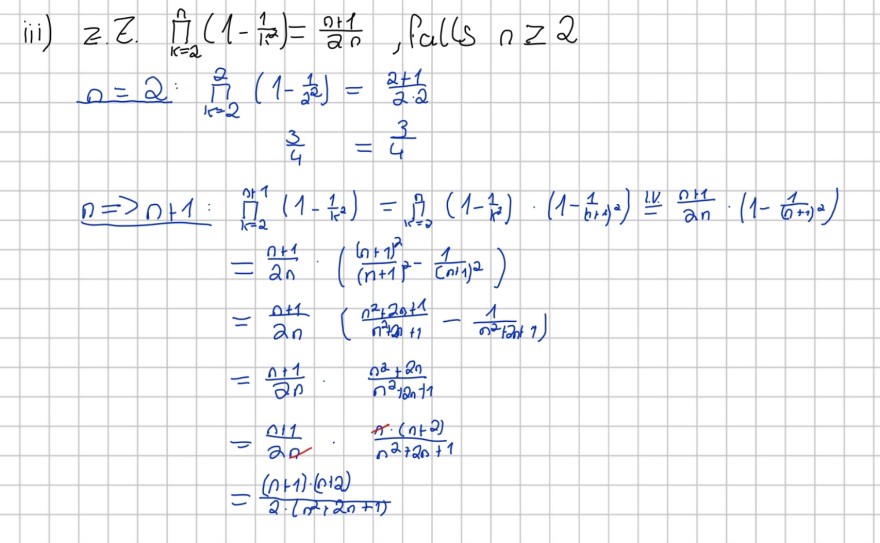 iii) z.Z. ∏_{k=2}^{n} (1 - 1/k²) = (n+1)/(2n) , falls n ≥ 2
n = 2: ∏_{k=2}^{2} (1 - 1/2²) = (2+1)/(2·2)
3/4 = 3/4
n => n+1: ∏_{k=2}^{n+1} (1 - 1/k²) = ∏_{k=2}^{n} (1 - 1/k²) · (1 - 1/(n+1)²) =^{I.V.} (n+1)/(2n) · (1 - 1/(n+1)²)
= (n+1)/(2n) · ((n+1)²/(n+1)² - 1/(n+1)²)
= (n+1)/(2n) ((n²+2n+1)/(n²+2n+1) - 1/(n²+2n+1))
= (n+1)/(2n) · (n²+2n)/(n²+2n+1)
= (n+1)/(2n) · (n·(n+2))/(n²+2n+1)
= ((n+1)·(n+2))/(2·(n²+2n+1))